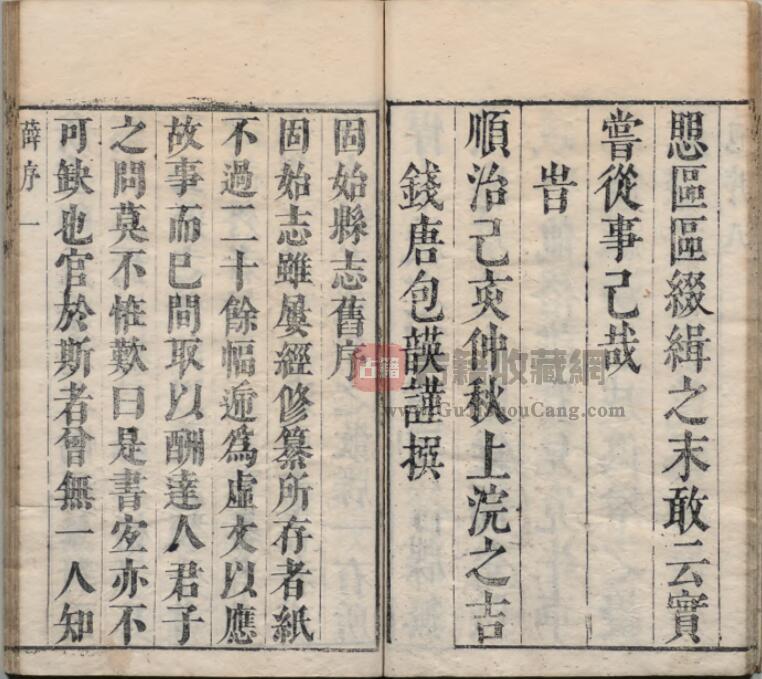 愳區區綴緝之末敢云實
嘗從事己哉
旹
順治己亥仲秋上浣之吉
錢唐包韺謹撰
固始縣志舊序
固始志雖屢經修纂所存者紙
不過二十餘幅遞爲虛文以應
故事而已間取以酬達人君子
之問莫不惟歎曰是書室亦不
可缺也官於斯者曾無一人知
薛序 一
古籍收藏網
www.GuJiShouCang.com